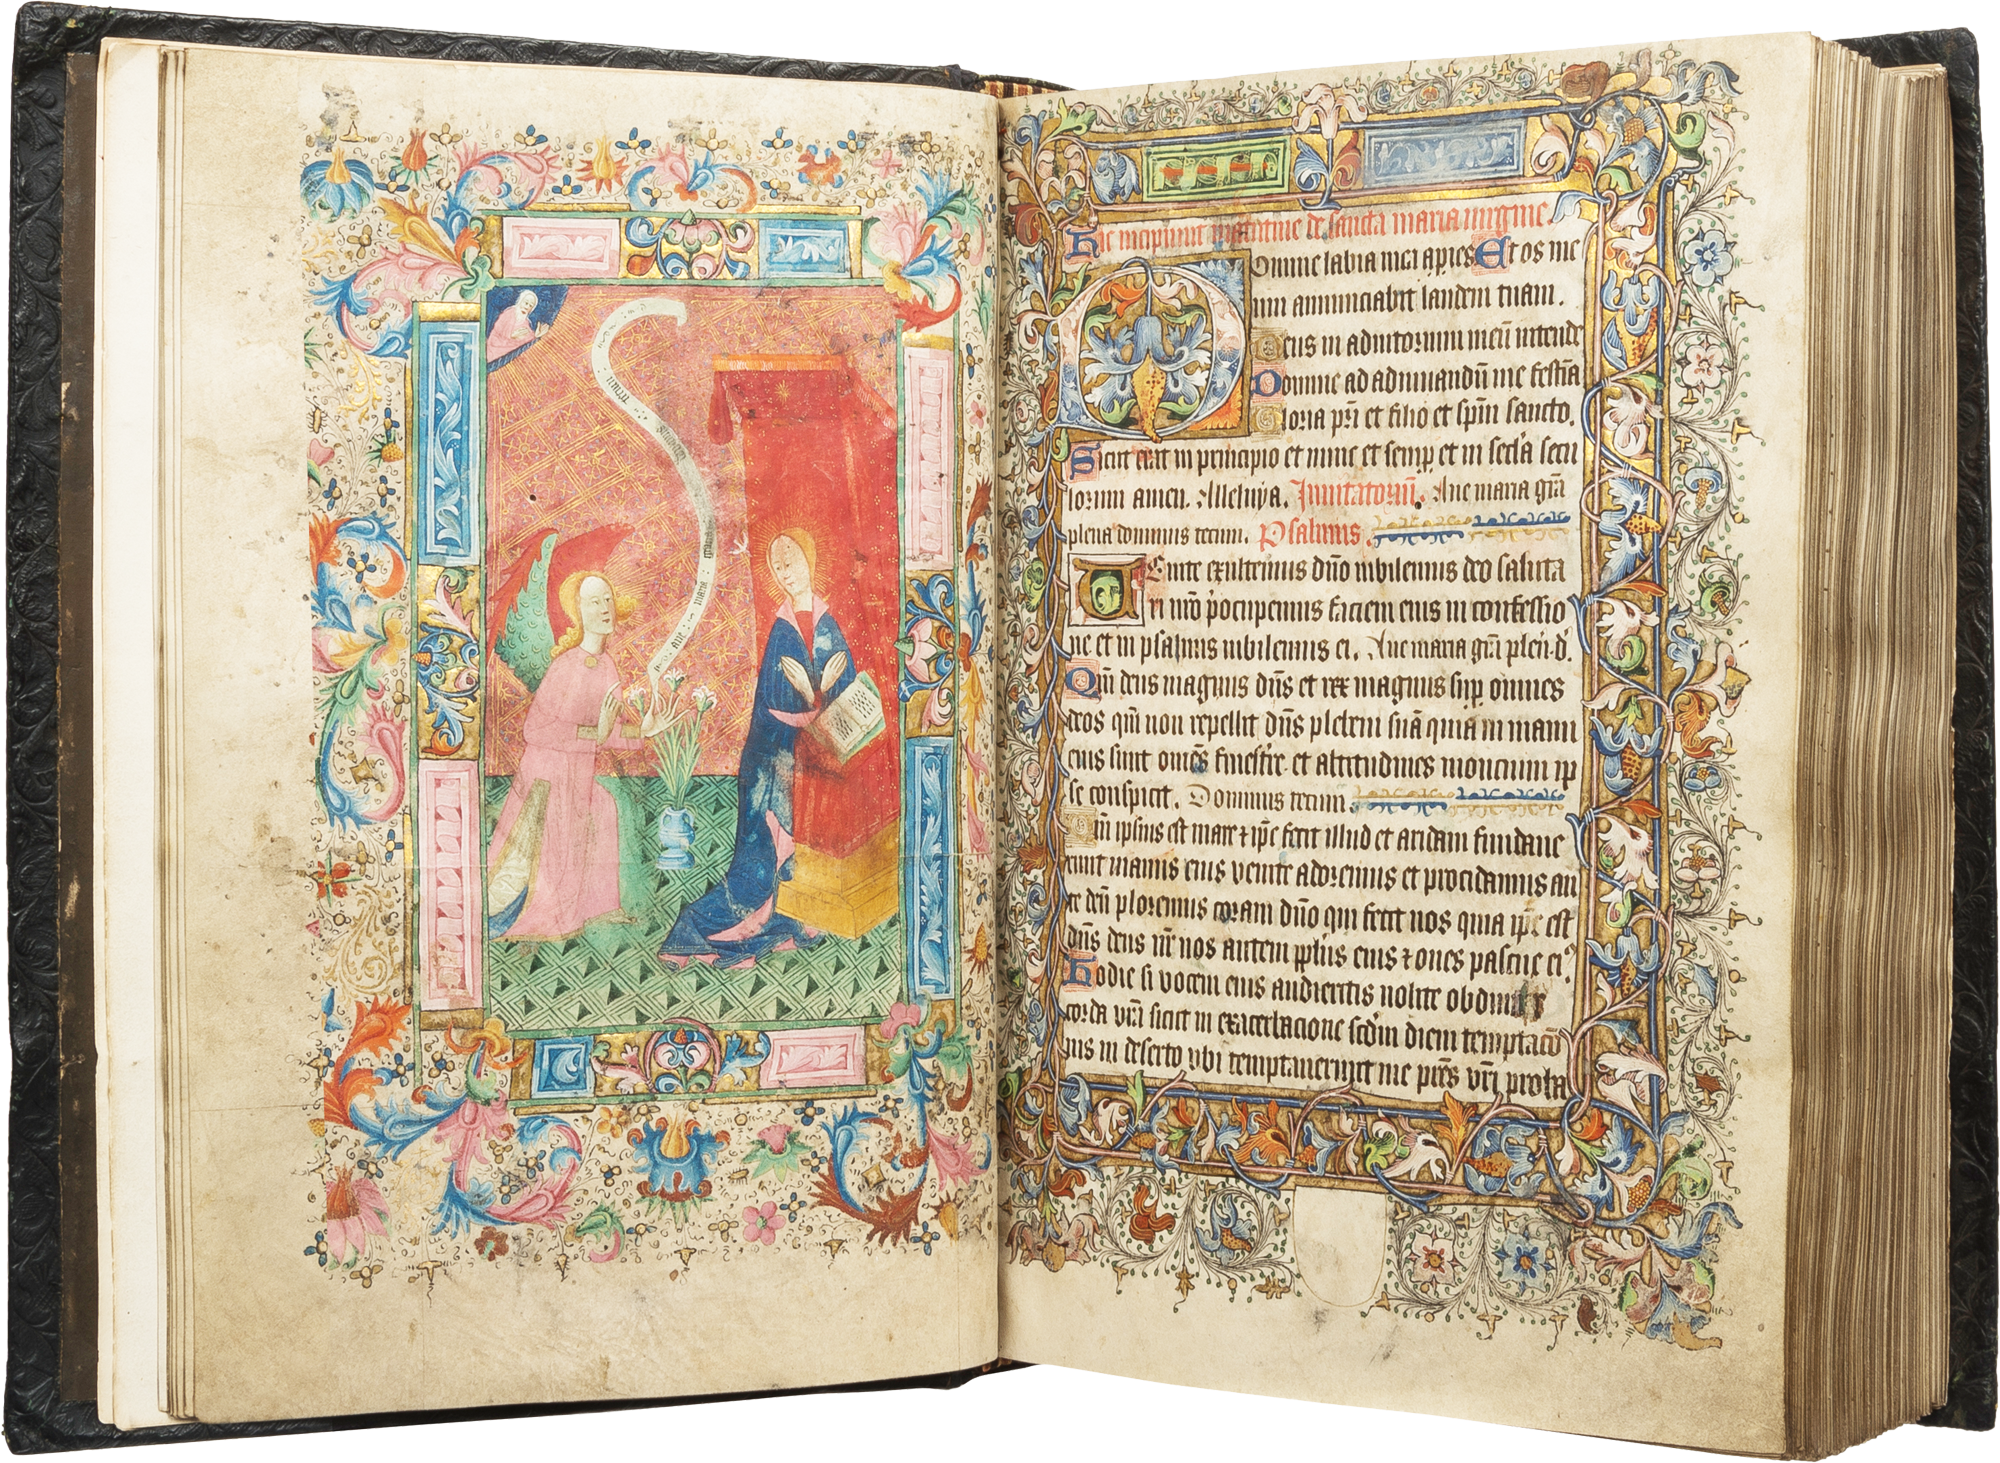 Aue maria gracia
Hic incipiunt matutine de sancta maria uirgine.
Domine labia mea apies Et os me
um annunciabit laudem tuam.
Deus in adiutorium meū intende
Domine ad adiuuandū me festīa
Gloria pr̄i et filio et spūi sancto.
Sicut erat in principio et nunc et semp et in secl'a secu
lorum amen. Alleluya. Inuitatoriū. Aue maria grā
plena dominus tecum. Psalmus.
Uenite exultemus dn̄o iubilemus deo saluta
ri nr̄o p̄ocupemus faciem eius in confessio
ne et in psalmis iubilemus ei. Aue maria grā plen. d.
Qm̄ deus magnus dn̄s et rex magnus sup omnes
deos qm̄ non repellit dn̄s plebem suā quia in manu
eius sunt om̄es fines tr̄e et altitudines moncium ip
se conspicit. Dominus tecum
Qm̄ ipsius est mare ⁊ ip̄e fecit illud et aridam fundaue
runt manus eius uenite adoremus et procidamus an
te dm̄ ploremus coram dn̄o qui fecit nos quia ip̄e est
dn̄s deus nr̄ nos autem ppl'us eius ⁊ oues pascue ei⁹
Hodie si vocem eius audieritis nolite obdurare
corda vr̄a sicut in exacerbacione scdm̄ diem temptacō
nis in deserto vbi temptauerunt me pr̄es vr̄i proba